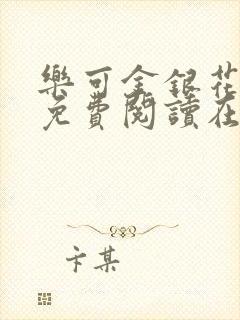 樂可金銀花
免費閱讀在
卞某